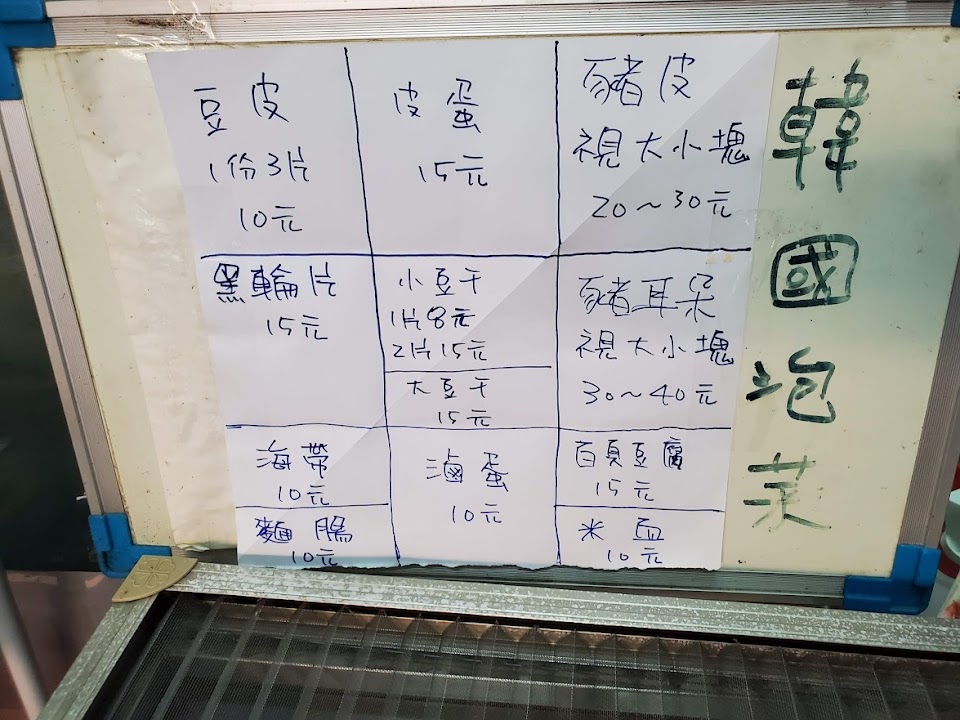 豆皮
1份3片
10元
皮蛋
15元
豬皮
視大小塊
20～30元
黑輪片
15元
小豆干
1片8元
2片15元
大豆干
15元
豬耳朵
視大小塊
30～40元
海帶
10元
麵腸
10元
滷蛋
10元
百頁豆腐
15元
米血
10元
韓國泡菜